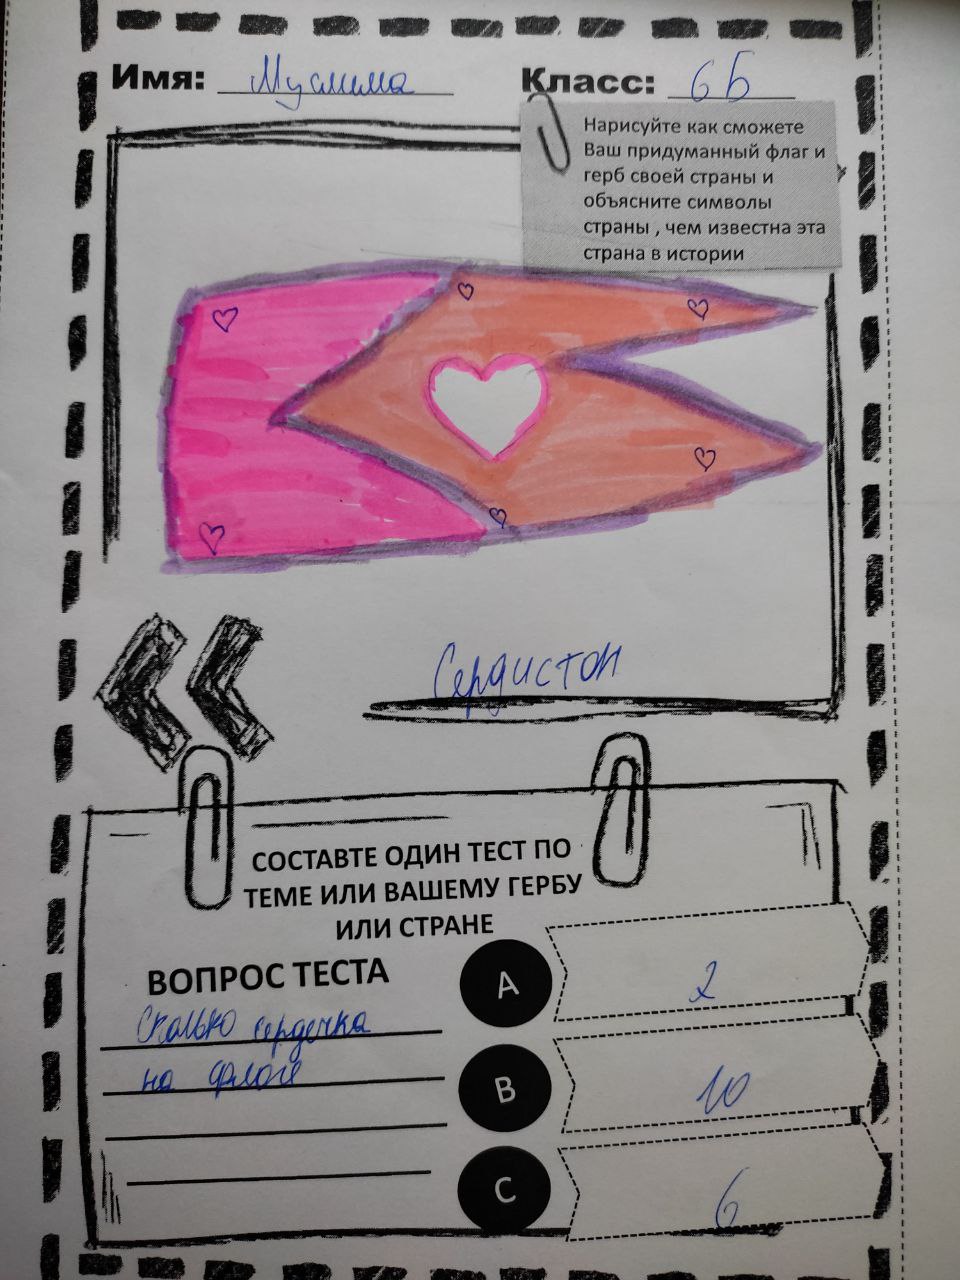 Имя: Муслима Класс: 6Б
Нарисуйте как сможете
Ваш придуманный флаг и
герб своей страны и
объясните символы
страны , чем известна эта
страна в истории
Сердистон
СОСТАВТЕ ОДИН ТЕСТ ПО
ТЕМЕ ИЛИ ВАШЕМУ ГЕРБУ
ИЛИ СТРАНЕ
ВОПРОС ТЕСТА
Сколько сердечка
на флаге
A 2
B 10
C 6